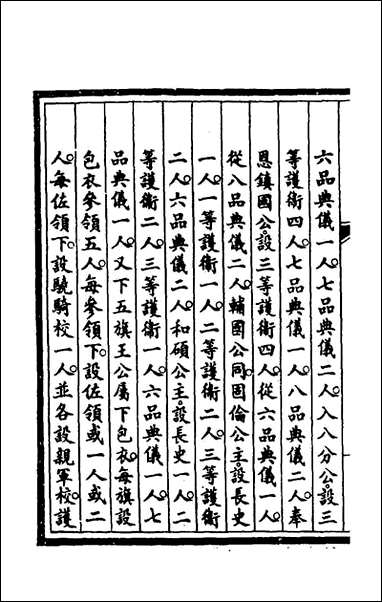 六品典儀一人七品典儀二人入八分公設三
等護衛四人七品典儀一人八品典儀二人奉
恩鎮國公設三等護衛四人從六品典儀一人
從八品典儀二人輔國公同固倫公主設長史
一人一等護衛一人二等護衛二人三等護衛
二人六品典儀二人和碩公主設長史一人二
等護衛二人三等護衛一人六品典儀一人七
品典儀一人又下五旗王公屬下包衣每旗設
包衣參領五人每參領下設佐領或一人或二
人每佐領下設驍騎校一人並各設親軍校護